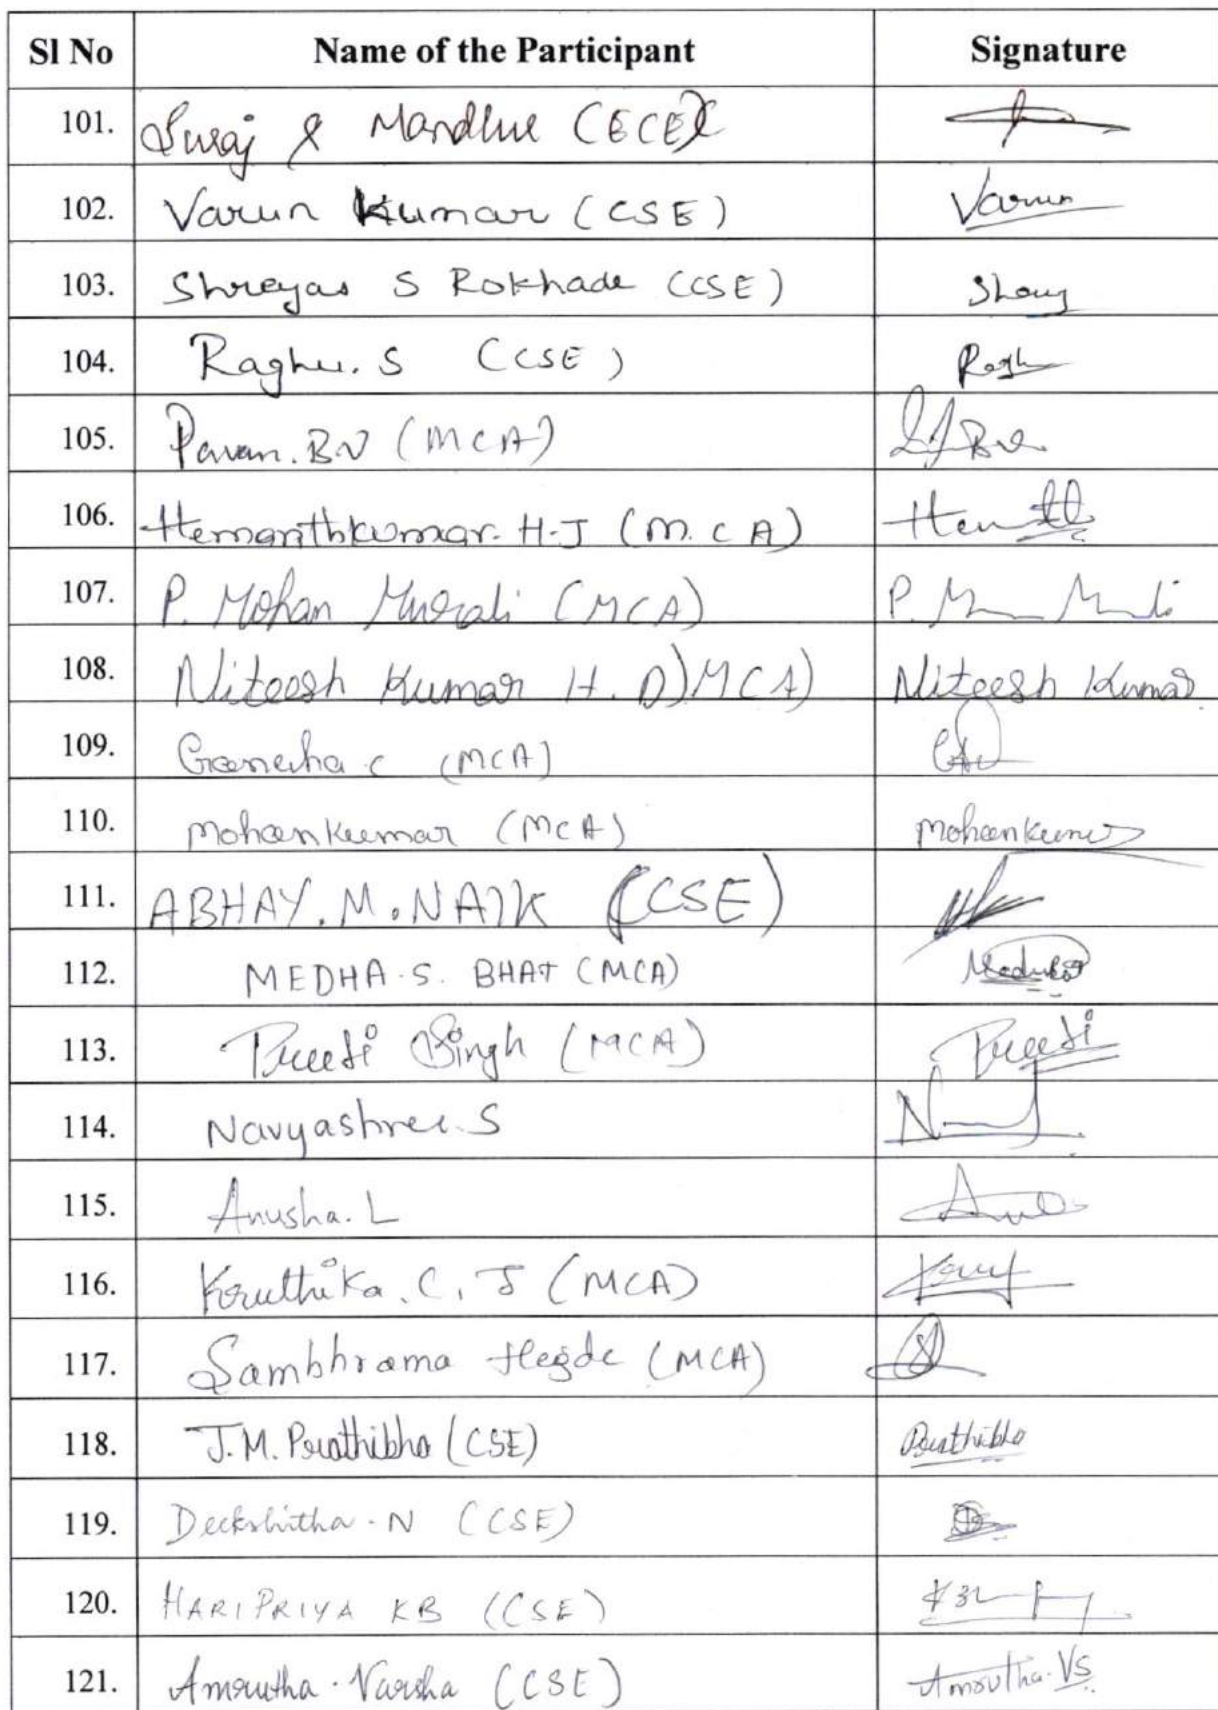 Sl No Name of the Participant Signature
101. Suraj & Mandhre (ECE)
102. Varun Kumar (CSE) Varun
103. Shreyas S Rokhade (CSE) Shrey
104. Raghu. S (CSE) Ragh
105. Pavan. BV (MCA)
106. Hemanthkumar. H.J (M.C A)
107. P. Mohan Murali (MCA)
108. Niteesh Kumar H. D) MCA) Niteesh Kumar
109. Ganesha c (MCA)
110. Mohankumar (MCA) Mohankumar
111. ABHAY. M. NAIK (CSE)
112. MEDHA. S. BHAT (MCA)
113. Preeti Singh (MCA) Preeti
114. Navyashree. S
115. Anusha. L
116. Kruthika. C. J (MCA)
117. Sambhrama Hegde (MCA)
118. J.M. Prathibha (CSE) Prathibha
119. Deekshitha. N (CSE)
120. HARIPRIYA KB (CSE)
121. Amrutha. Varsha (CSE) Amrutha. VS